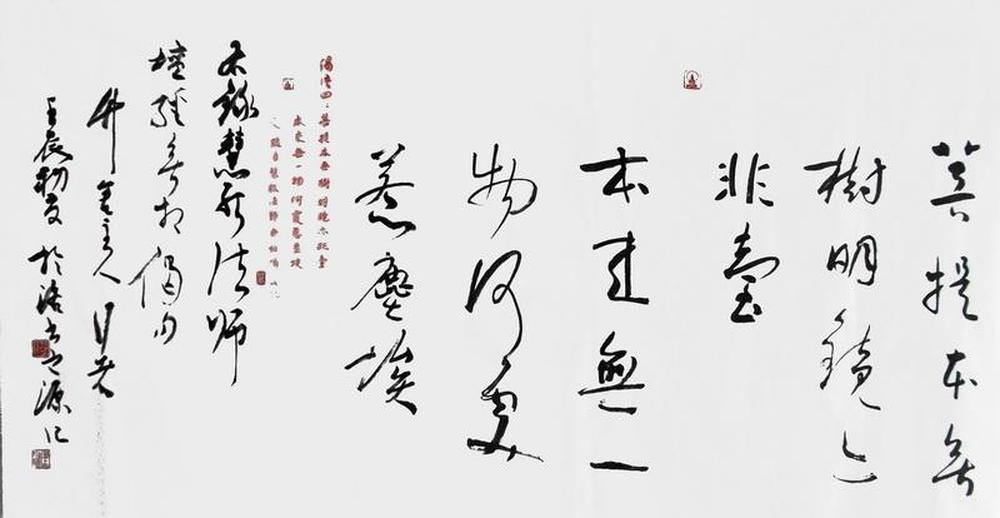 菩提本無
樹明鏡亦
非臺
本来無一
物何處
惹塵埃
菩提本無樹明鏡亦非臺
本来無一物何處惹塵埃
録慧能法師
壇經無相偈句
主人
壬辰初夏於洛書之源记